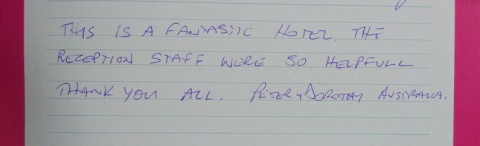 THIS IS A FANTASTIC HOTEL. THE
RECEPTION STAFF WERE SO HELPFULL
THANK YOU ALL. PETER & DOROTHY AUSTRALIA.